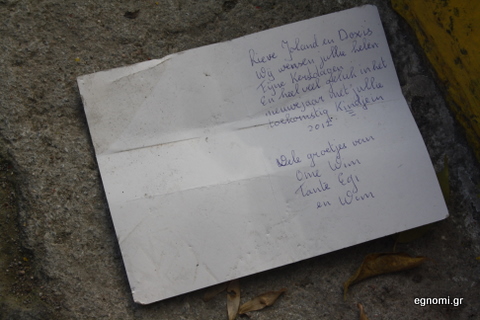 Lieve Joland en Doxis
Wij wensen jullie helen
Fijne Kerstdagen
en heel veel geluk in het
nieuwejaar met jullie
toekomstig Kindjein
2012
Vele groetjes van
Ome Wim
Tante Egi
en Wim
egnomi.gr